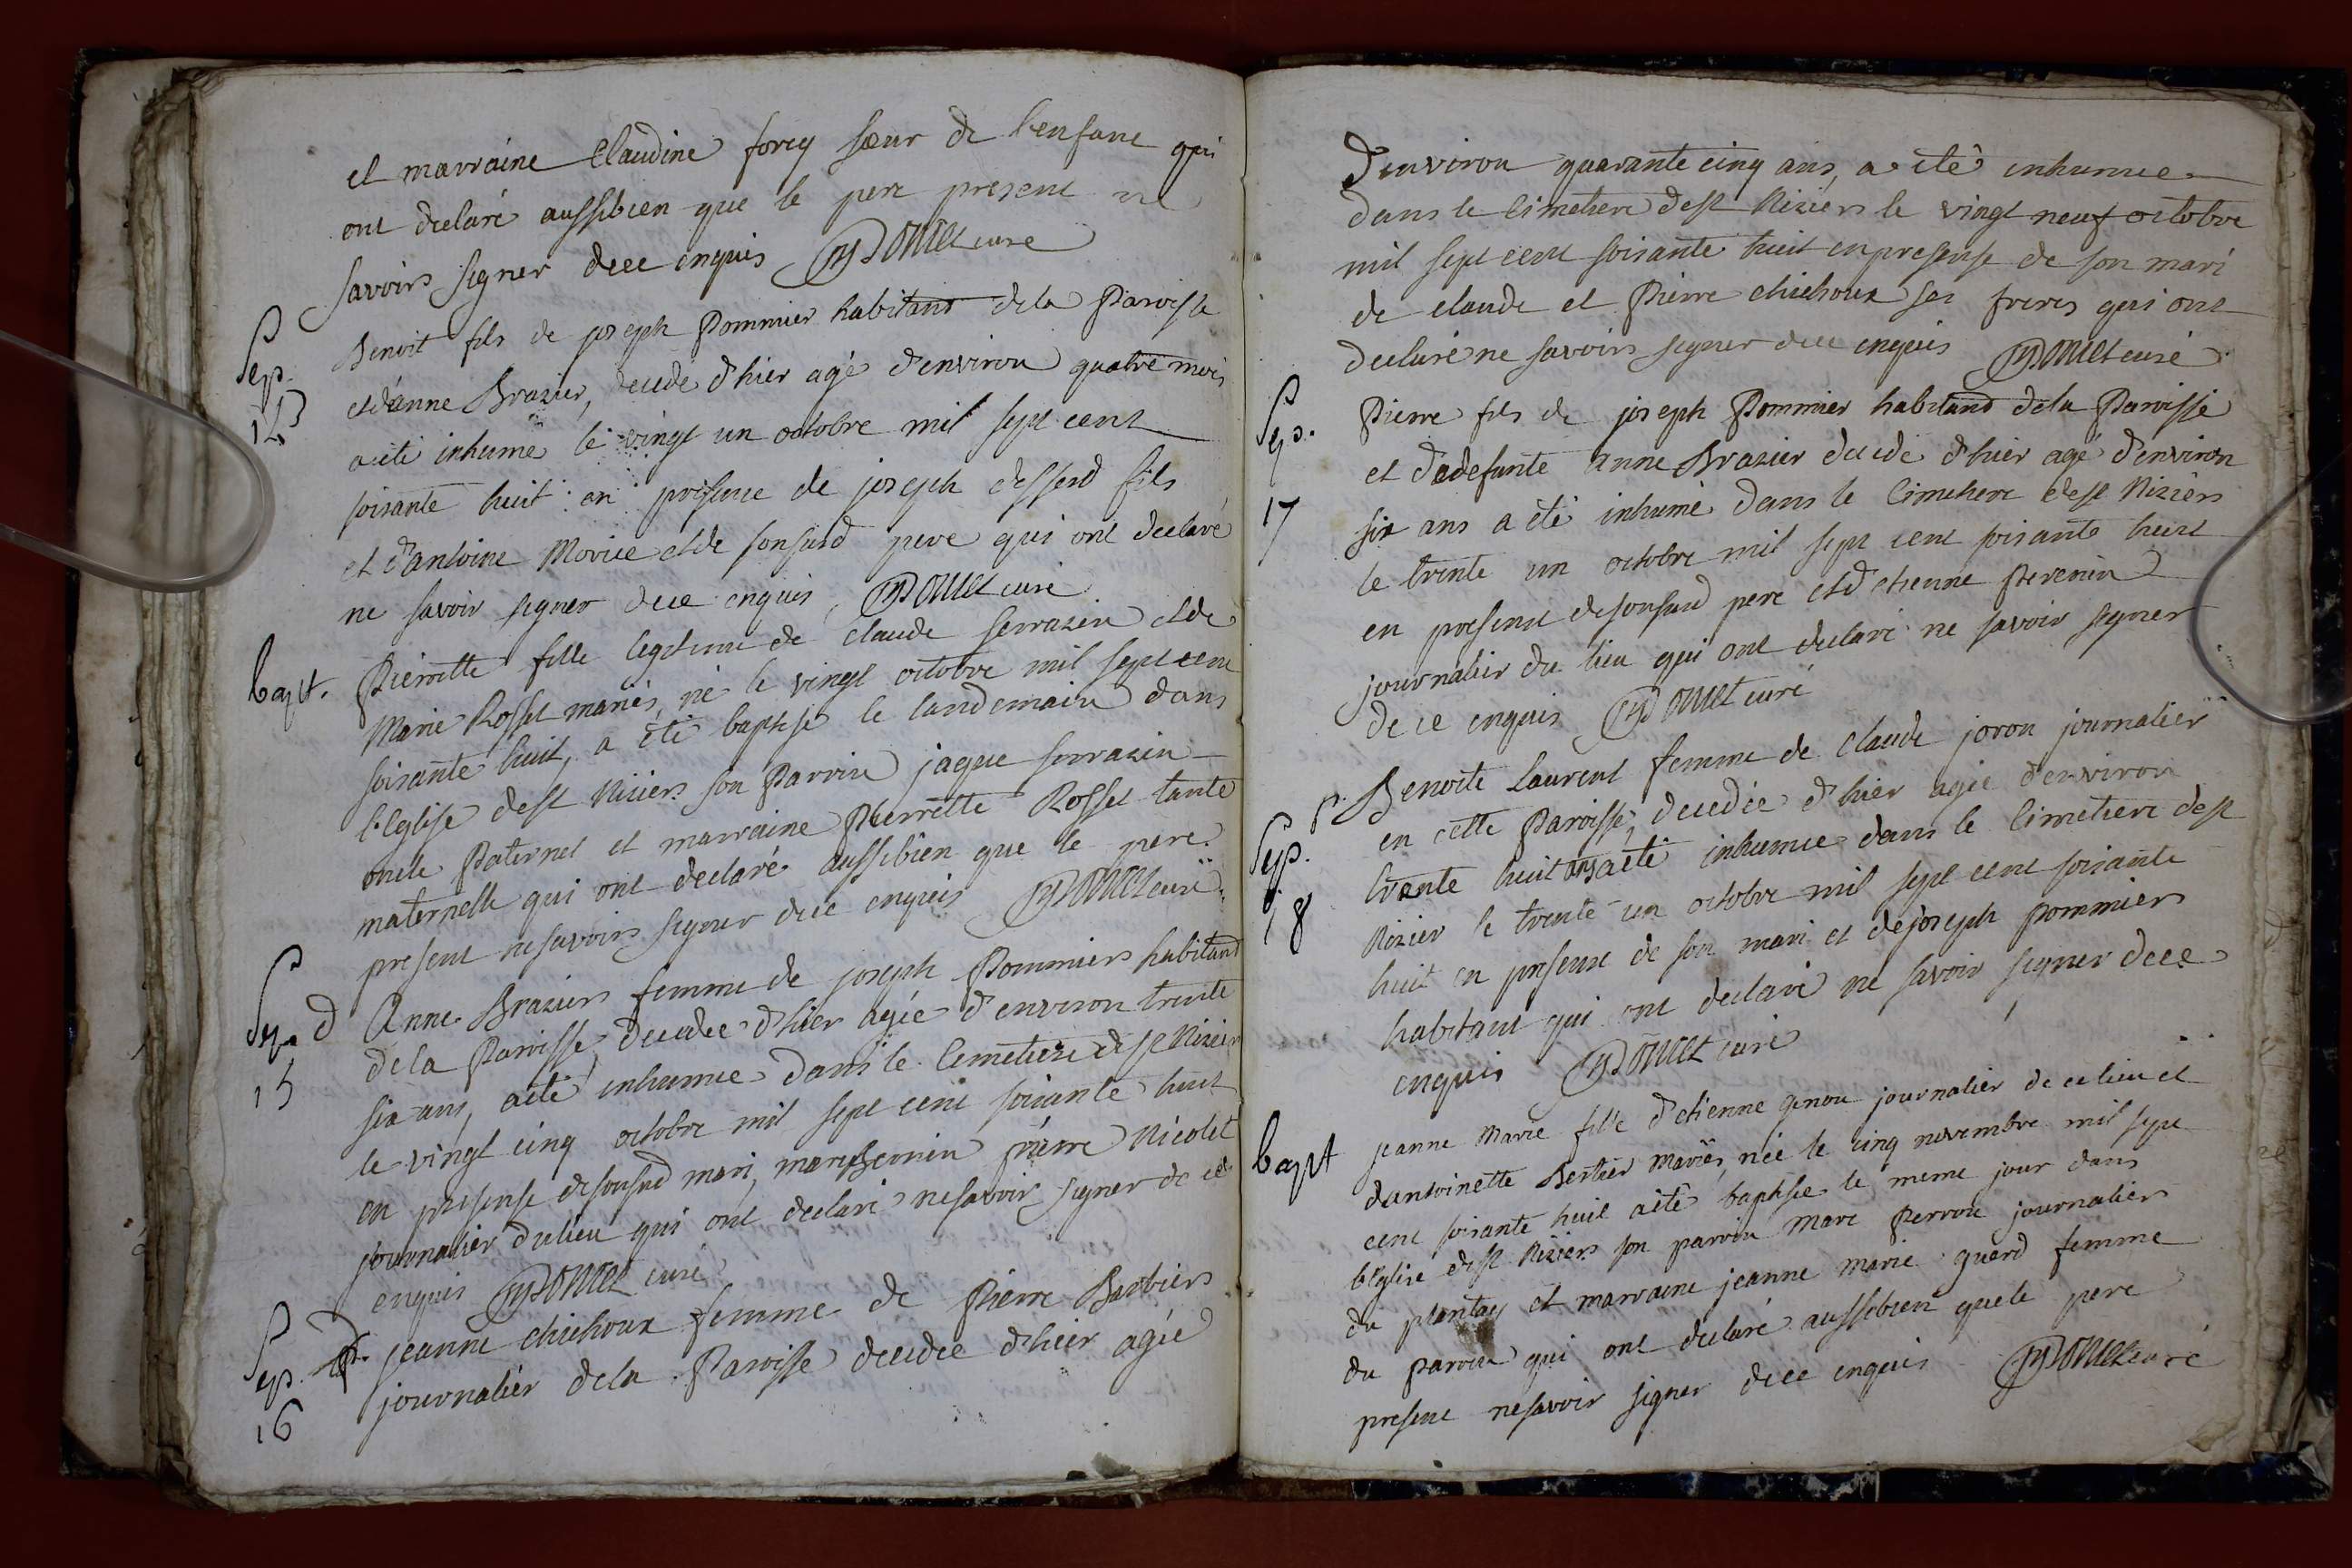 et marraine Claudine forey sœur de l'enfant qui
ont declaré aussibien que le pere present ne
savoir signer dece enquis curé
Sep. Benoit fils de joseph Pommier habitand dela Paroisse
et d'anne Brazier, decede d'hier agé d'environ quatre mois
aété inhumé le vingt un octobre mil sept cent
soixante huit en presence de joseph fils
et d'antoine et de sonsusd pere qui ont declaré
ne savoir signer dece enquis curé
bapt. Pierrette fille legitime de claude serrazin et de
Marie Rosset mariés, né le vingt octobre mil sept cent
soixante huit, a été baptisé le landemain dans
l'Eglise dest Niziers son Parrin jaque serrazin
oncle Paternel et marraine Pierrette Rosset tante
maternelle qui ont declaré aussibien que le pere
present nesavoir signer dece enquis curé
Sep. d Anne Braziers femme de joseph Pommiers habitand
15 dela Paroisse, decedée d'hier agée d'environ trente
six ans, aété inhumée dans le Cimetiere dest Nizier
le vingt cinq octobre mil sept cent soixante huit
en presense desonsusd mari, pierre Nicolet
journalier dulieu qui ont declaré nesavoir signer de ce
enquis curé
Sep. jeanne chichoux femme de Pierre Barbiers
16 journalier dela Paroisse decedée d'hier agée
d'environ quarante cinq ans, a été inhumée
dans le Cimetiere dest Niziers le vingt neuf octobre
mil sept cent soixante huit enpresense de son mari
de claude et Pierre chichoux ses freres qui ont
declaré ne savoir signer dece enquis curé
Sep. Pierre fils de joseph Pommier habitand dela Paroisse
et dedefunte anne Brazier decedé d'hier agé d'environ
17 six ans a été inhumé dans le Cimetiere dest Niziers
le trente un octobre mil sept cent soixante huit
en presense desonsusd pere et d'etienne
journalier du lieu qui ont declaré ne savoir signer
de ce enquis curé
Benoite Laurent femme de Claude joron journalier
Sep. en cette Paroisse, decedée d'hier agée d'environ
trente huit ans aété inhumée dans le Cimetiere dest
18 Nizier le trente un octobre mil sept cent soixante
huit en presense de son mari et de joseph pommiers
habitant qui ont declaré ne savoir signer dece
enquis curé
bapt jeanne Marie fille d'etienne genou journalier de celieu et
dantoinette Bertier mariés, née le cinq novembre mil sept
cent soixante huit aété baptisée le meme jour dans
l'Eglise dest Niziers son parrin Marc Perron journaliers
du plantay et marraine jeanne marie guerd femme
du parrin qui ont declaré aussibien quele pere
present nesavoir signer dece enquis curé